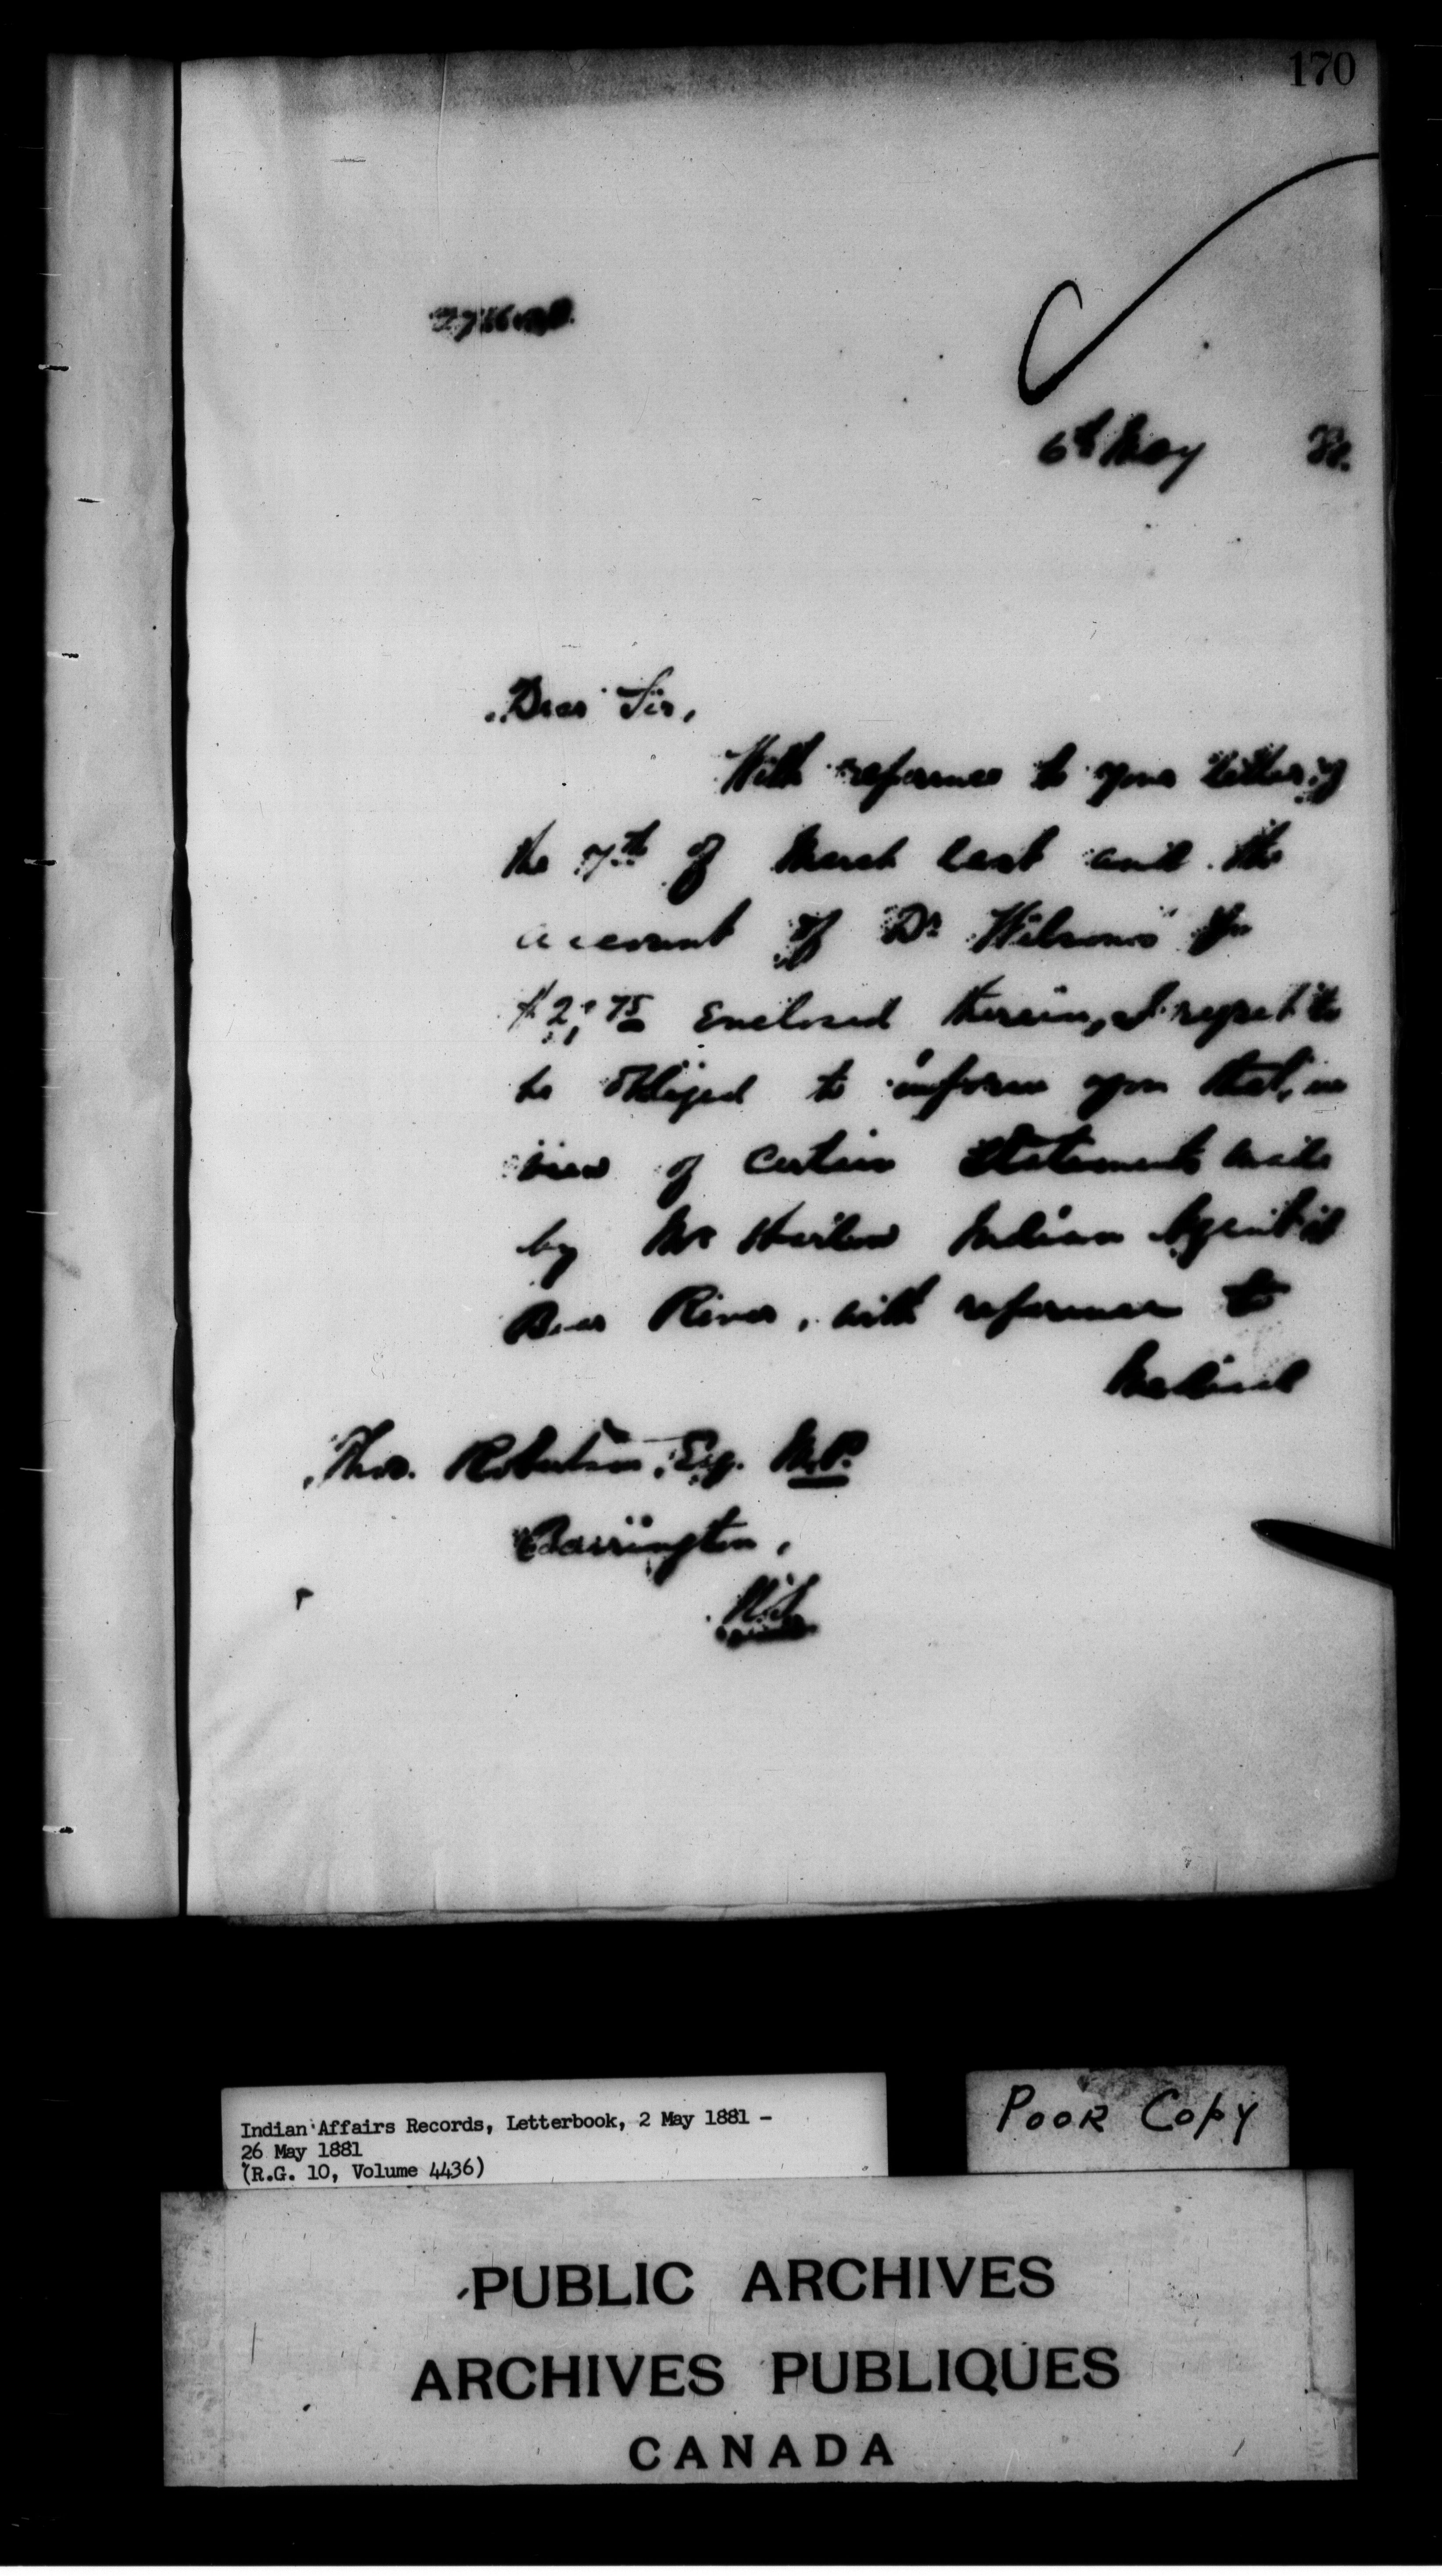 170
6th May 81.
Dear Sir,
With reference to your letter of
the 7th of March last and the
account of Dr Wilson's for
enclosed therein, I regret to
be obliged to inform you that, in
view of certain statements made
by Mr Harlow Indian Agent at
Bear River, with reference to
Medical
Thos. Robertson, Esq. M.P.
Barrington,
N.S.
Indian Affairs Records, Letterbook, 2 May 1881 -
26 May 1881
(R.G. 10, Volume 4436)
POOR Copy
PUBLIC ARCHIVES
ARCHIVES PUBLIQUES
CANADA